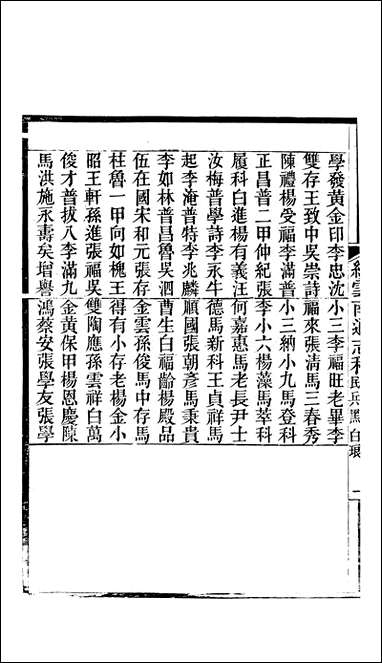 學發黃金印李忠沈小三李福旺老畢李
雙存王致中吳崇詩福來張清馬三春秀
陳禮楊受福李滿普小三納小九馬登科
正昌普二甲仲紀張李小六楊藻馬萃科
履科白進楊有義汪何嘉惠馬老長尹士
汝梅普學詩李永牛德馬新科王貞祥馬
起李淹普特李兆麟順國張朝彥馬秉貴
李如林普昌魯吳泗曹生白福齡楊殿品
伍在國宋和元張存金雲孫俊馬中存馬
柱魯一甲向如槐王得有小存老楊金小
昭王軒孫進張福吳雙陶應孫雲祥白萬
俊才普拔八李滿九金黃保甲楊恩慶陳
馬洪施永壽矣增譽鴻蔡安張學友張學
雲南通志